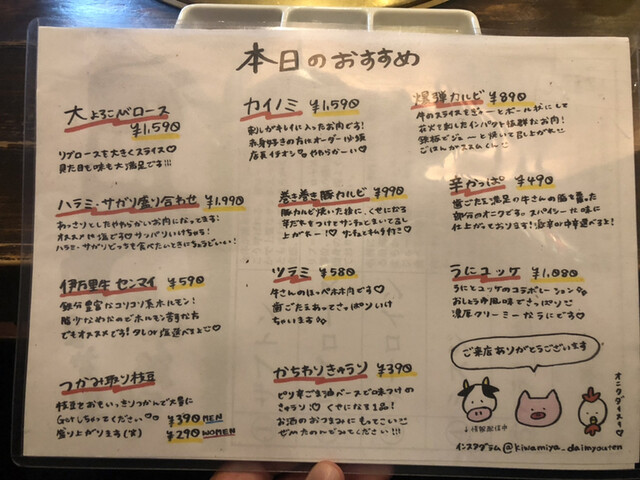 本日のおすすめ
大よろこびロース
¥1,590
リブロースを大きくスライス♡
見た目も味も大満足です!!!
カイノミ ¥1,590
刺しがキレイに入ったお肉です!
赤身好きの方にはオーダー必須
店長イチオシ やわらかーい♡
爆弾カルビ ¥890
牛のスライスをぎゅーとボール状にして
花火を刺したインパクト抜群なお肉!
鉄板でジューと焼いて召し上がれ
ごはんがススムくん
ハラミ・サガリ盛り合わせ ¥1,990
あっさりとしたやわらかいお肉になってます!
オススメは塩です♡サッパリいけちゃう!
ハラミ・サガリどっちも食べたいときにちょうどいい!
巻き巻き豚カルビ ¥990
豚カルビ焼いた後に、くせになる
辛だれをつけてサンチュにまいてるし
上がれー!♡サンチュと私も付き♡
辛かっぱ ¥490
歯ごたえ満足の牛さんの脂を蓄った
部分のオニクです。スパイシーな味に
仕上がっております!激辛か中辛選べるよ!
伊万里牛 センマイ ¥590
鉄分豊富なコリコリ系ホルモン!
脂少なめなのでホルモン苦手な方
でもオススメです!タレか塩選べるよ♡
ツラミ ¥580
牛さんのほっペホホ肉です♡
歯ごたえあってさっぱりいけ
ちゃいます
うにユッケ ¥1,080
うにとユッケのコラボレーション
おしょうゆ風味でさっぱり
濃厚クリーミーなうにです♡
つかみ取り枝豆
枝豆をおもいっきりつかんで大量に
Getしちゃってください
盛り上がります(笑)
¥390 MEN
¥290 WOMEN
かちわりきゅうり ¥390
ピリ辛ごま油ベースで味つけの
きゅうり♡くせになる1品!
お酒のおつまみにもってこい
ぜひたのんでみてください!!!
ご来店ありがとうございます
オニクダイスキ♡
↓情報配信中
インスタグラム@kiwamiya_daimyouten